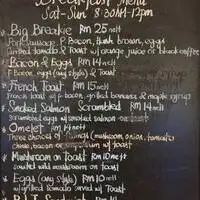 Breakfast Menu
Sat-Sun 8:30AM-12pm
Big Breakie RM 25 nett
Pork Sausage, F Bacon, thank brown, eggs
Grilled tomato & Toast w/ orange juice or black coffee
Bacon & Eggs RM 14 nett
F Bacon, eggs (any style) & Toast
French Toast RM 15 nett
French Toast w/ F bacon, grilled bananas & maple syrup
Smoked Salmon Scrambled RM 14 nett
Scrambled eggs w/ smoked salmon on toast
Omelet RM 14 nett
Three choices of things (mushroom, onion, tomato
cheese, bacon or w/ toast
Mushroom on Toast RM 10 nett
wild mushroom on toast
Eggs (any style) RM 10 nett
w/ grilled tomato served w/ Toast